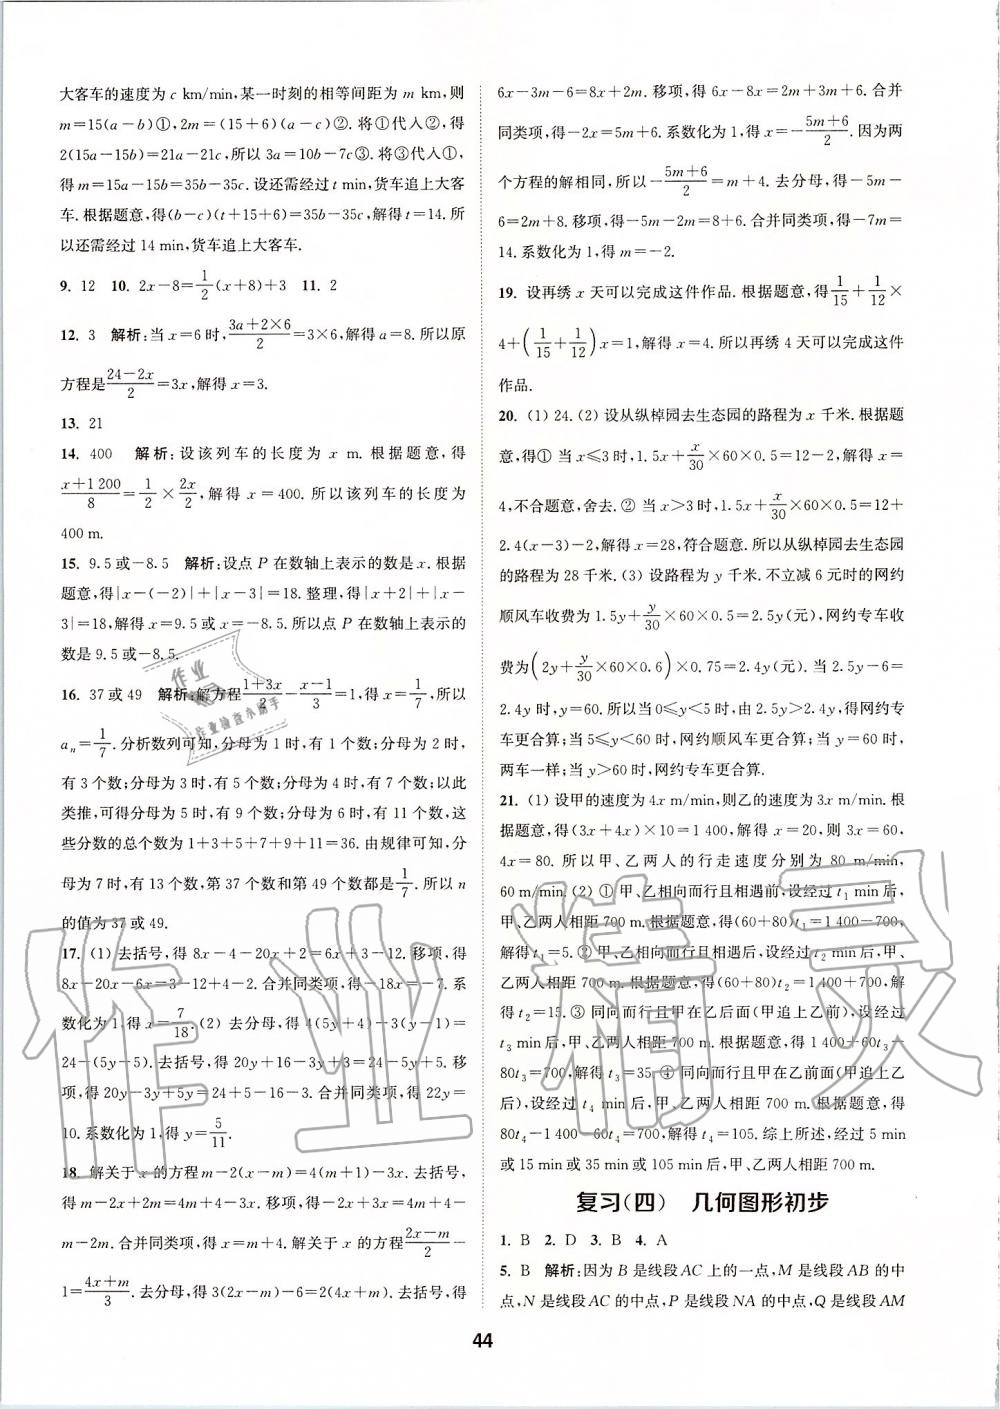 大客车的速度为 c km/min,某一时刻的相等间距为 m km,则
m=15(a-b)①,2m=(15+6)(a-c)②. 将①代入②,得
2(15a-15b)=21a-21c,所以 3a=10b-7c③. 将③代入①,
得 m=15a-15b=35b-35c. 设还需经过 t min,货车追上大客
车. 根据题意,得(b-c)(t+15+6)=35b-35c,解得 t=14. 所
以还需经过 14 min,货车追上大客车.
9. 12 10. 2x-8=1/2(x+8)+3 11. 2
12. 3 解析:当 x=6 时,(3a+2×6)/2=3×6,解得 a=8. 所以原
方程是(24-2x)/2=3x,解得 x=3.
13. 21
14. 400 解析:设该列车的长度为 x m. 根据题意,得
(x+1 200)/8=1/2×2x/2,解得 x=400. 所以该列车的长度为
400 m.
15. 9.5 或-8.5 解析:设点 P 在数轴上表示的数是 x. 根据
题意,得|x-(-2)|+|x-3|=18. 整理,得|x+2|+|x-
3|=18,解得 x=9.5 或 x=-8.5. 所以点 P 在数轴上表示的
数是 9.5 或-8.5.
16. 37 或 49 解析:解方程(1+3x)/2-(x-1)/3=1,得 x=1/7,所以
aₙ=1/7. 分析数列可知,分母为 1 时,有 1 个数;分母为 2 时,
有 3 个数;分母为 3 时,有 5 个数;分母为 4 时,有 7 个数;以此
类推,可得分母为 5 时,有 9 个数;分母为 6 时,有 11 个数,这
些分数的总个数为 1+3+5+7+9+11=36. 由规律可知,分
母为 7 时,有 13 个数,第 37 个数和第 49 个数都是1/7. 所以 n
的值为 37 或 49.
17. (1) 去括号,得 8x-4-20x+2=6x+3-12. 移项,得
8x-20x-6x=3-12+4-2. 合并同类项,得-18x=-7. 系
数化为 1,得 x=7/18. (2) 去分母,得 4(5y+4)-3(y-1)=
24-(5y-5). 去括号,得 20y+16-3y+3=24-5y+5. 移
项,得 20y-3y+5y=24+5-16-3. 合并同类项,得 22y=
10. 系数化为 1,得 y=5/11.
18. 解关于 x 的方程 m-2(x-m)=4(m+1)-3x. 去括号,
得 m-2x+2m=4m+4-3x. 移项,得-2x+3x=4m+4-
m-2m. 合并同类项,得 x=m+4. 解关于 x 的方程(2x-m)/2-
1=(4x+m)/3. 去分母,得 3(2x-m)-6=2(4x+m). 去括号,得
6x-3m-6=8x+2m. 移项,得 6x-8x=2m+3m+6. 合并
同类项,得-2x=5m+6. 系数化为 1,得 x=-(5m+6)/2. 因为两
个方程的解相同,所以-(5m+6)/2=m+4. 去分母,得-5m-
6=2m+8. 移项,得-5m-2m=8+6. 合并同类项,得-7m=
14. 系数化为 1,得 m=-2.
19. 设再绣 x 天可以完成这件作品. 根据题意,得1/15+1/12×
4+(1/15+1/12)x=1,解得 x=4. 所以再绣 4 天可以完成这件
作品.
20. (1) 24. (2) 设从纵棹园去生态园的路程为 x 千米. 根据题
意,得① 当 x≤3 时,1.5x+x/30×60×0.5=12-2,解得 x=
4,不合题意,舍去. ② 当 x>3 时,1.5x+x/30×60×0.5=12+
2.4(x-3)-2,解得 x=28,符合题意. 所以从纵棹园去生态园
的路程为 28 千米. (3) 设路程为 y 千米. 不立减 6 元时的网约
顺风车收费为 1.5y+y/30×60×0.5=2.5y(元),网约专车收
费为(2y+y/30×60×0.6)×0.75=2.4y(元). 当 2.5y-6=
2.4y 时,y=60. 所以当 0≤y<5 时,由 2.5y>2.4y,得网约专
车更合算;当 5≤y<60 时,网约顺风车更合算;当 y=60 时,
两车一样;当 y>60 时,网约专车更合算.
21. (1) 设甲的速度为 4x m/min,则乙的速度为 3x m/min. 根
据题意,得(3x+4x)×10=1 400,解得 x=20,则 3x=60,
4x=80. 所以甲、乙两人的行走速度分别为 80 m/min,
60 m/min. (2) ① 甲、乙相向而行且相遇前,设经过 t₁ min 后,
甲、乙两人相距 700 m. 根据题意,得(60+80)t₁=1 400-700,
解得 t₁=5. ② 甲、乙相向而行且相遇后,设经过 t₂ min 后,甲、
乙两人相距 700 m. 根据题意,得(60+80)t₂=1 400+700,解
得 t₂=15. ③ 同向而行且甲在乙后面(甲追上乙前),设经过
t₃ min后,甲、乙两人相距 700 m. 根据题意,得 1 400+60t₃-
80t₃=700,解得 t₃=35. ④ 同向而行且甲在乙前面(甲追上乙
后),设经过 t₄ min 后,甲、乙两人相距 700 m. 根据题意,得
80t₄-1 400-60t₄=700,解得 t₄=105. 综上所述,经过 5 min
或 15 min 或 35 min 或 105 min 后,甲、乙两人相距 700 m.
复习(四) 几何图形初步
1. B 2. D 3. B 4. A
5. B 解析:因为 B 是线段 AC 上的一点,M 是线段 AB 的中
点,N 是线段 AC 的中点,P 是线段 NA 的中点,Q 是线段 AM
44
作业
作业检查小助手
作业精灵